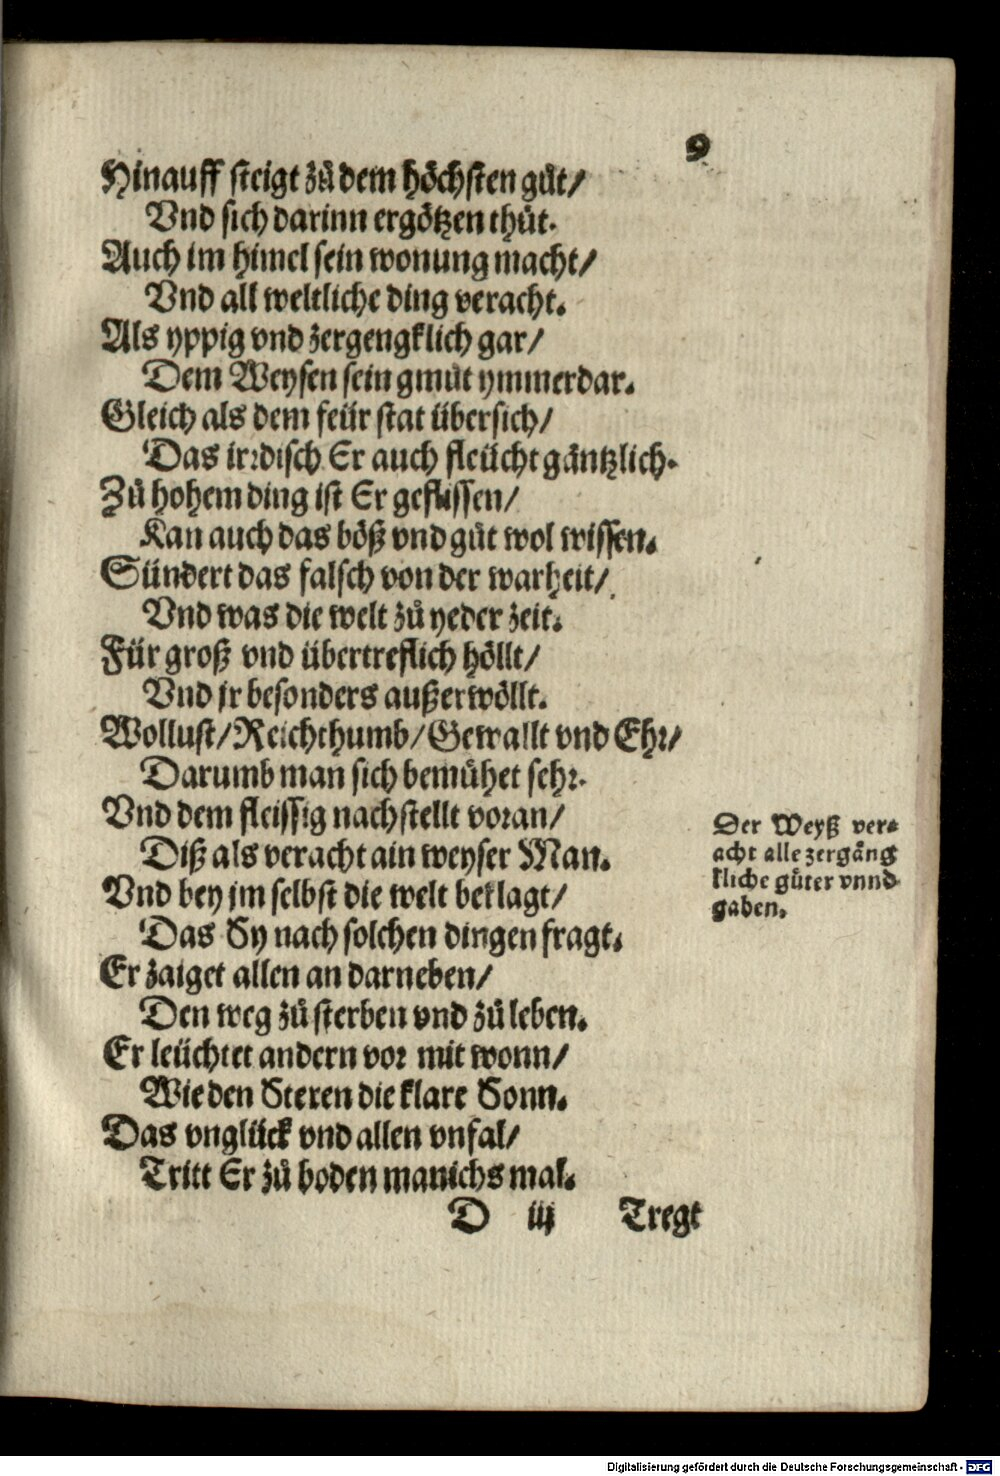 9
Hinauff steigt zů dem höchsten gůt/
Vnd sich darinn ergötzen thůt.
Auch im himel sein wonung macht/
Vnd all weltliche ding veracht.
Als yppig vnd zergengklich gar/
Dem Weysen sein gmůt ymmerdar.
Gleich als dem feür stat übersich/
Das irꝛdisch Er auch fleücht gäntzlich.
Zů hohem ding ist Er geflissen/
Kan auch das böß vnd gůt wol wissen.
Sündert das falsch von der warheit/
Vnd was die welt zů yeder zeit.
Für groß vnd übertreflich höllt/
Vnd jr besonders außerwöllt.
Wollust/Reichthumb/Gewallt vnd Ehꝛ/
Darumb man sich bemůhet sehꝛ.
Vnd dem fleissig nachstellt voꝛan/
Diß als veracht ain weyser Man.
Vnd bey jm selbst die welt beklagt/
Das Sy nach solchen dingen fragt.
Er zaiget allen an darneben/
Den weg zů sterben vnd zů leben.
Er leüchtet andern voꝛ mit wonn/
Wie den Steren die klare Sonn.
Das vnglück vnd allen vnfal/
Tritt Er zů boden manichs mal.
D iij Tregt
Der Weyß ver⸗
acht alle zergäng
kliche gůter vnnd
gaben.
Digitalisierung gefördert durch die Deutsche Forschungsgemeinschaft - DFG